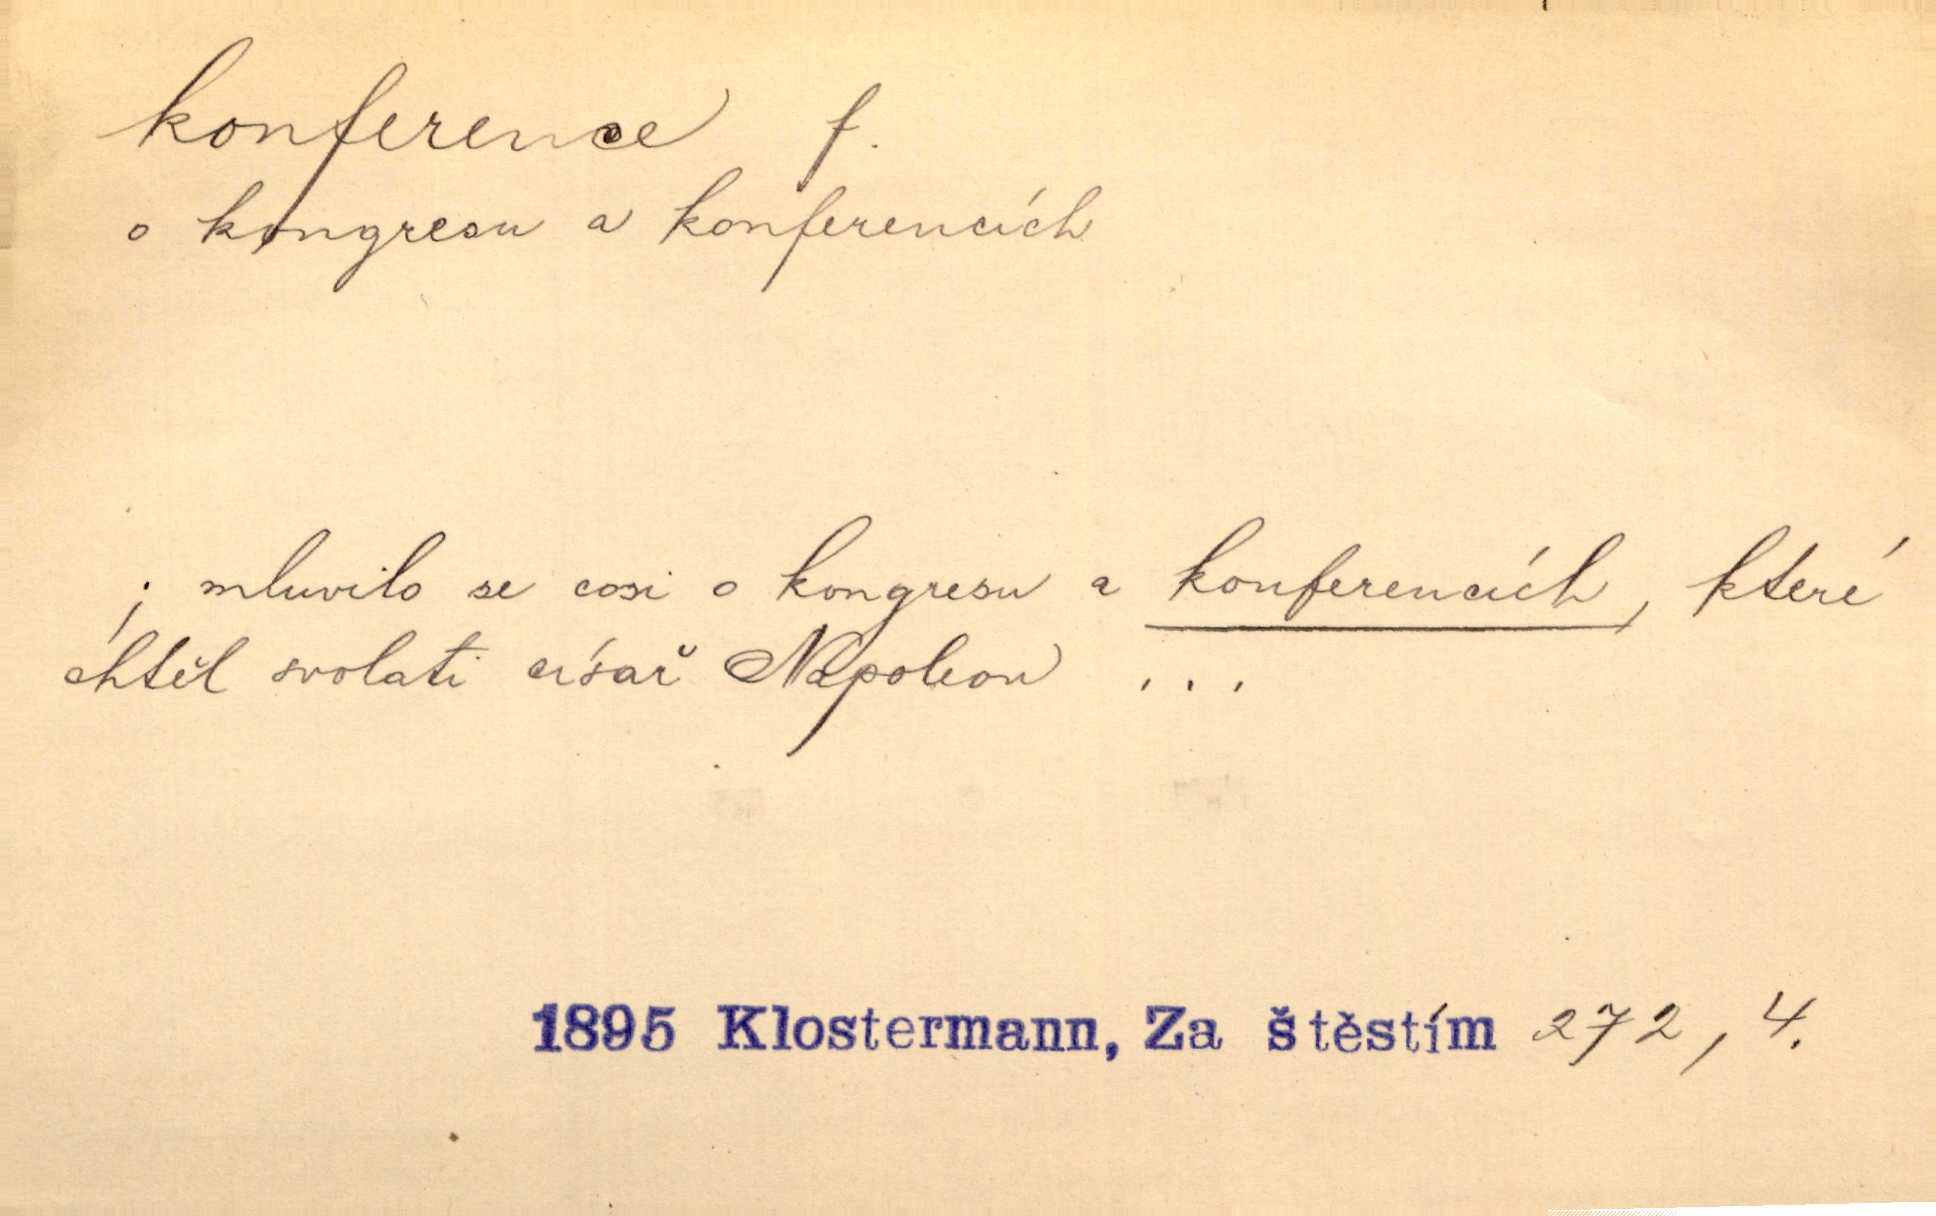 konference f.
o kongresu a konferencích
; mluvilo se cosi o kongresu a konferencích, které
chtěl svolati císař Napoleon ...
1895 Klostermann, Za štěstím 272, 4.